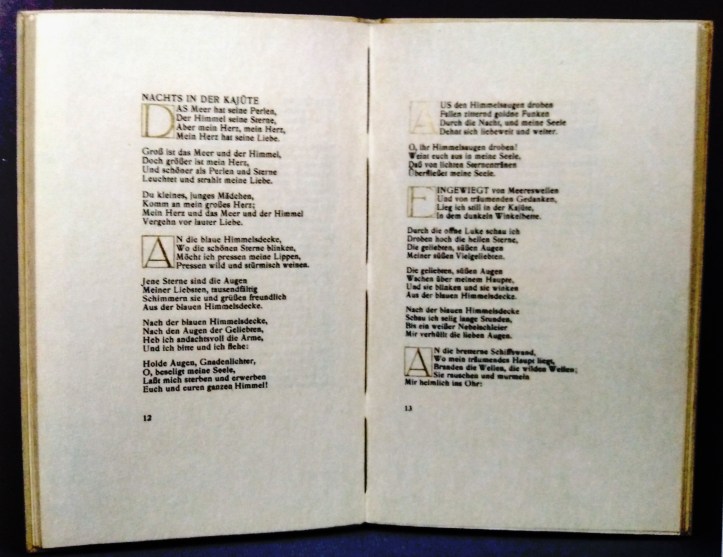 NACHTS IN DER KAJÜTE
DAS Meer hat seine Perlen,
Der Himmel seine Sterne,
Aber mein Herz, mein Herz,
Mein Herz hat seine Liebe.
Groß ist das Meer und der Himmel,
Doch größer ist mein Herz,
Und schöner als Perlen und Sterne
Leuchtet und strahlt meine Liebe.
Du kleines, junges Mädchen,
Komm an mein großes Herz;
Mein Herz und das Meer und der Himmel
Vergehn vor lauter Liebe.
AN die blaue Himmelsdecke,
Wo die schönen Sterne blinken,
Möcht ich pressen meine Lippen,
Pressen wild und stürmisch weinen.
Jene Sterne sind die Augen
Meiner Liebsten, tausendfältig
Schimmern sie und grüßen freundlich
Aus der blauen Himmelsdecke.
Nach der blauen Himmelsdecke,
Nach den Augen der Geliebten,
Heb ich andachtsvoll die Arme,
Und ich bitte und ich flehe:
Holde Augen, Gnadenlichter,
O, beseligt meine Seele,
Laßt mich sterben und erwerben
Euch und euren ganzen Himmel!
12
AUS den Himmelsaugen droben
Fallen zitternd goldne Funken
Durch die Nacht, und meine Seele
Dehnt sich liebeweit und weiter.
O, ihr Himmelsaugen droben!
Weint euch aus in meine Seele,
Daß von lichten Sternentränen
Überfließet meine Seele.
EINGEWIEGT von Meereswellen
Und von träumenden Gedanken,
Lieg ich still in der Kajüte,
In dem dunkeln Winkelbette.
Durch die offne Luke schau ich
Droben hoch die hellen Sterne,
Die geliebten, süßen Augen
Meiner süßen Vielgeliebten.
Die geliebten, süßen Augen
Wachen über meinem Haupte,
Und sie blinken und sie winken
Aus der blauen Himmelsdecke.
Nach der blauen Himmelsdecke
Schau ich selig lange Stunden,
Bis ein weißer Nebelschleier
Mir verhüllt die lieben Augen.
AN die bretterne Schiffswand,
Wo mein träumendes Haupt liegt,
Branden die Wellen, die wilden Wellen;
Sie rauschen und murmeln
Mir heimlich ins Ohr:
13